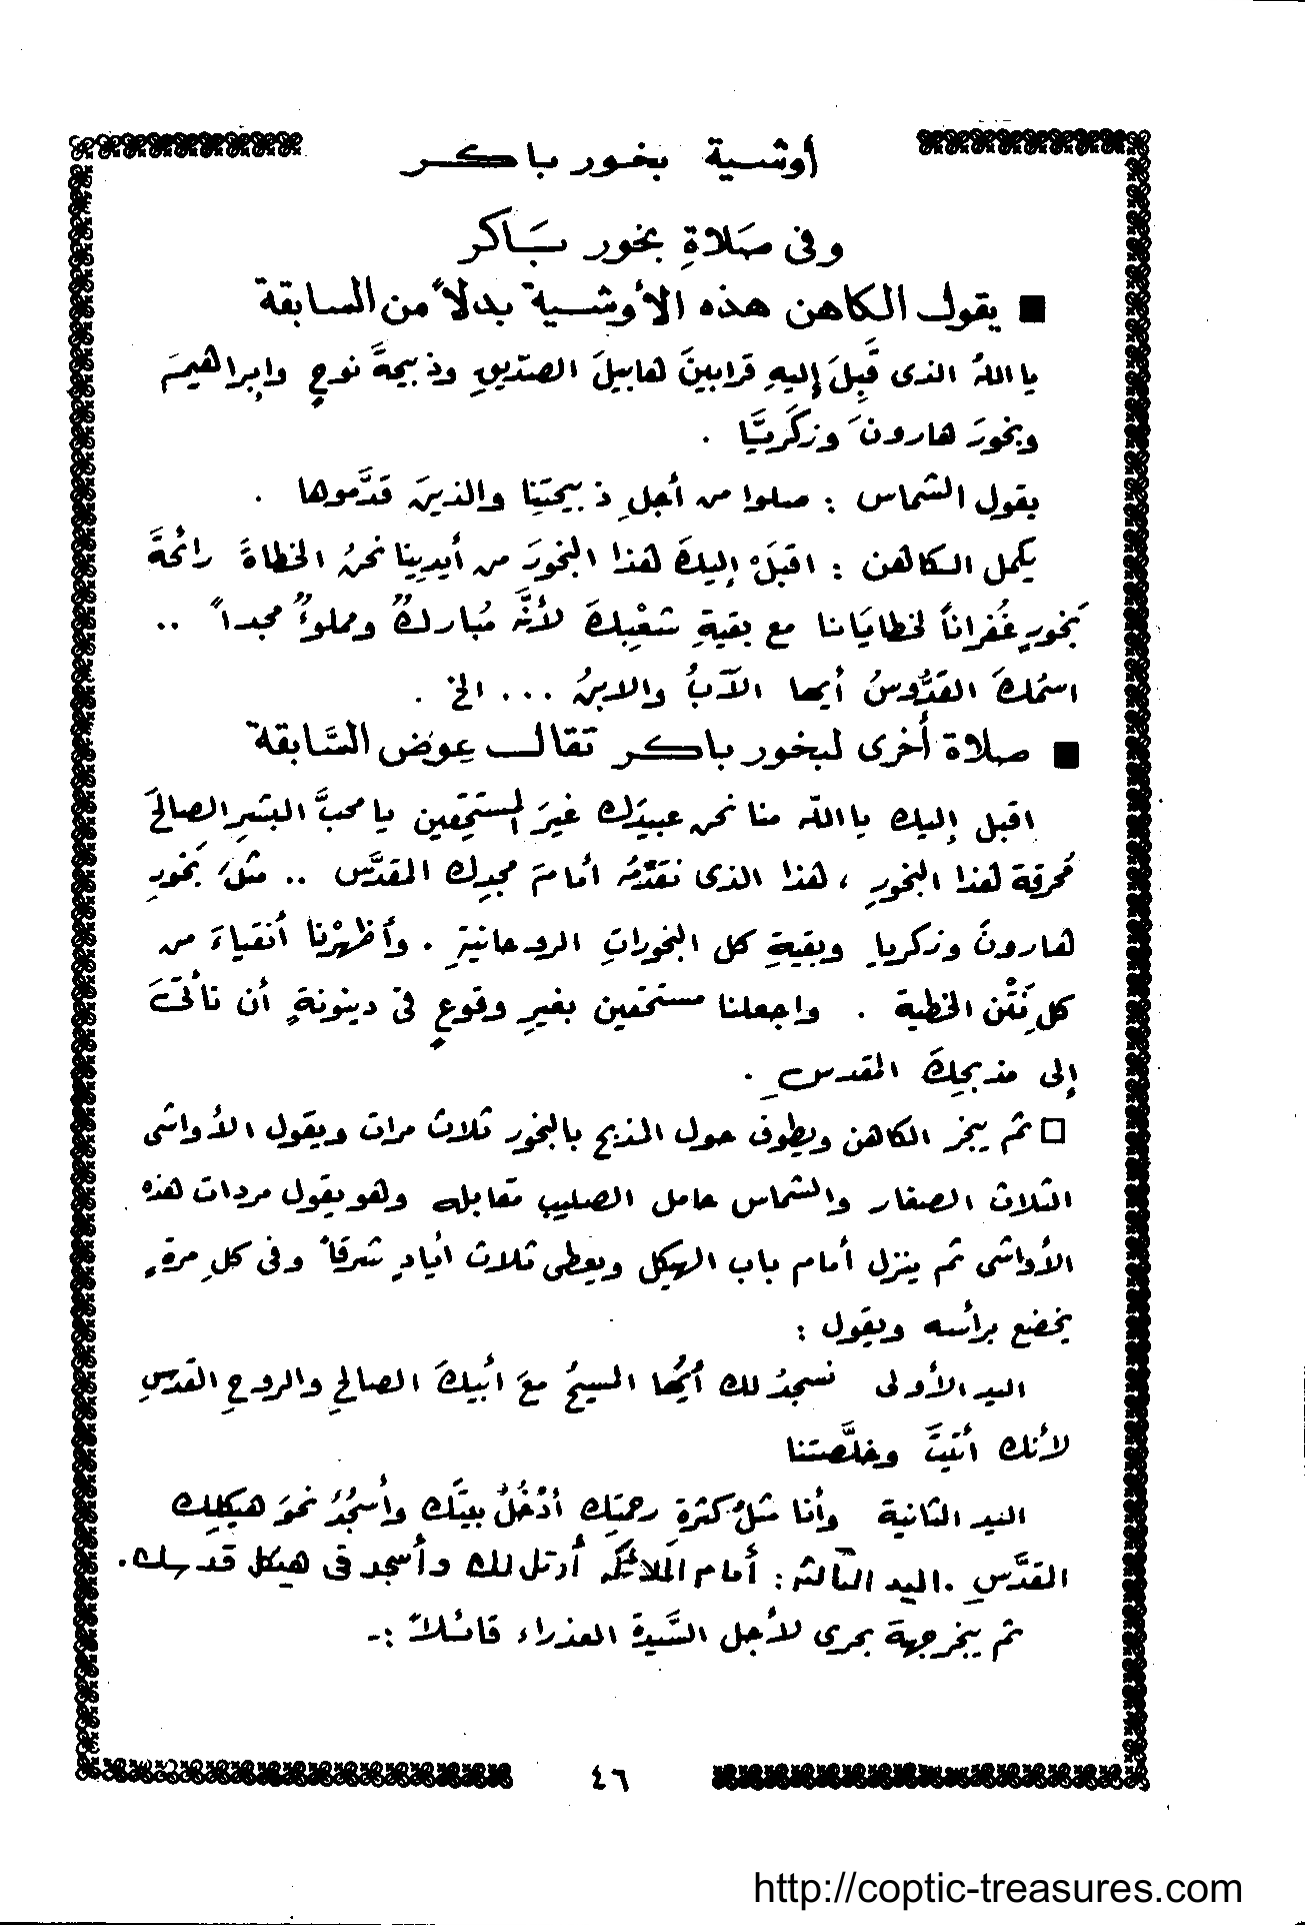 أوشية بخور باكر
وفى صَلاةِ بخور بَاكر
■ يقول الكاهن هذه الأوشية بدلاً من السابقة
يا اللهُ الذى قَبِلَ إليهِ قرابينَ هابيلَ الصدّيقِ وذبيحةَ نوحٍ وإبراهيمَ
وبخورَ هارونَ وزكَريَّا .
يقول الشماس : صلوا من أجلِ ذبيحتِنا والذينَ قدَّموها .
يكمل الكاهن : اقبَلْ إليكَ هذا البخورَ من أيدينا نحنُ الخطاةَ رائحةَ
بَخورٍ غُفراناً لخطايَانا مع بقيةِ شعْبِكَ لأنَّه مُباركٌ ومملوءٌ مجداً ..
اسمُكَ القدُّوسُ أيها الآبُ والابنُ ... الخ .
■ صلاة أخرى لبخور باكر تقال عِوَض السَّابقة
اقبل إليك يا اللّه منا نحن عبيدَك غيرَ المستحِقين يا محبَّ البشرِ الصالحَ
مُحرقة هذا البخورِ ، هذا الذى نقدّمُه أمامَ مجدِك المقدَّس .. مثلَ بَخورِ
هارونَ وزكريا وبقيةِ كل البخوراتِ الروحانيةِ . وأظهرْنا أنقياءَ من
كل نَتْنِ الخطية . واجعلنا مستحقين بغيرِ وقوعٍ فى دينونةٍ أن نأتىَ
إلى مذبحِكَ المقدسِ .
□ ثم يبخر الكاهن ويطوف حول المذبح بالبخور ثلاث مرات ويقول الأواشى
الثلاث الصغار والشماس حامل الصليب مقابله وهو يقول مردات هذه
الأواشى ثم ينزل أمام باب الهيكل ويعطى ثلاث أيادٍ شرقاً وفى كلِ مرةٍ
يخضع برأسه ويقول :
اليد الأولى نسجدُ لك أيُّها المسيحُ معَ أبيكَ الصالحِ والروحِ القدسِ
لأنك أتيتَ وخلَّصتنا
اليد الثانية وأنا مثلُ كثرةِ رحمتِك أدْخُلُ بيتَك وأسجُدُ نحوَ هيكلِك
المقدَّسِ . اليد الثالثة : أمام الملائكة أرتل لك وأسجد فى هيكل قدسك .
ثم يبخر جهة بحرى لأجل السَّيدة العذراء قائلاً :-
٤٦
http://coptic-treasures.com